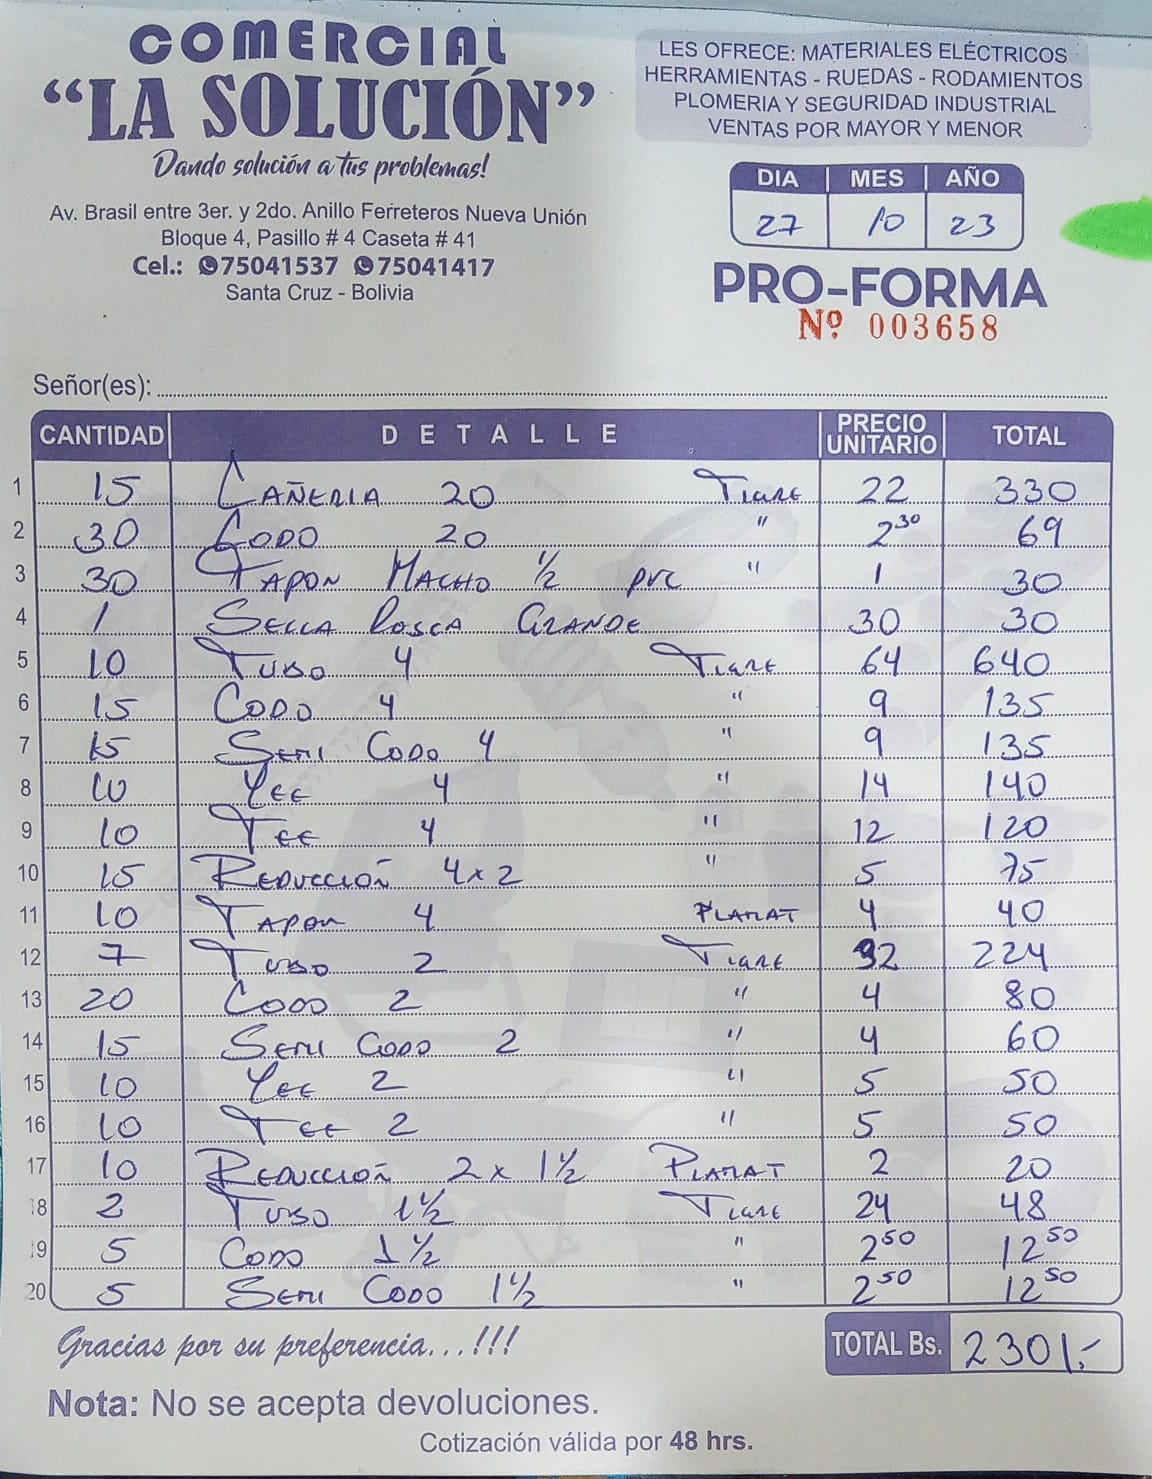 COMERCIAL
“LA SOLUCIÓN”
Dando solución a tus problemas!
Av. Brasil entre 3er. y 2do. Anillo Ferreteros Nueva Unión
Bloque 4, Pasillo # 4 Caseta # 41
Cel.: 75041537 75041417
Santa Cruz - Bolivia
LES OFRECE: MATERIALES ELÉCTRICOS
HERRAMIENTAS - RUEDAS - RODAMIENTOS
PLOMERIA Y SEGURIDAD INDUSTRIAL
VENTAS POR MAYOR Y MENOR
DIA MES AÑO
27 10 23
PRO-FORMA
Nº 003658
Señor(es):
CANTIDAD DETALLE PRECIO UNITARIO TOTAL
1 15 CAÑERIA 20 TIGRE 22 330
2 30 CODO 20 " 2 30 69
3 30 TAPON MACHO 1/2 PVC " 1 30
4 1 SELLA ROSCA GRANDE 30 30
5 10 TUBO 4 TIGRE 64 640
6 15 CODO 4 " 9 135
7 15 SEMI CODO 4 " 9 135
8 10 YEE 4 " 14 140
9 10 TEE 4 " 12 120
10 15 REDUCCIÓN 4x2 " 5 75
11 10 TAPON 4 PLAMAT 4 40
12 7 TUBO 2 TIGRE 32 224
13 20 CODO 2 " 4 80
14 15 SEMI CODO 2 " 4 60
15 10 YEE 2 " 5 50
16 10 TEE 2 " 5 50
17 10 REDUCCIÓN 2 x 1 1/2 PLAMAT 2 20
18 2 TUBO 1 1/2 TIGRE 24 48
19 5 CODO 1 1/2 " 2 50 12 50
20 5 SEMI CODO 1 1/2 " 2 50 12 50
Gracias por su preferencia...!!!
TOTAL Bs. 2301.-
Nota: No se acepta devoluciones.
Cotización válida por 48 hrs.